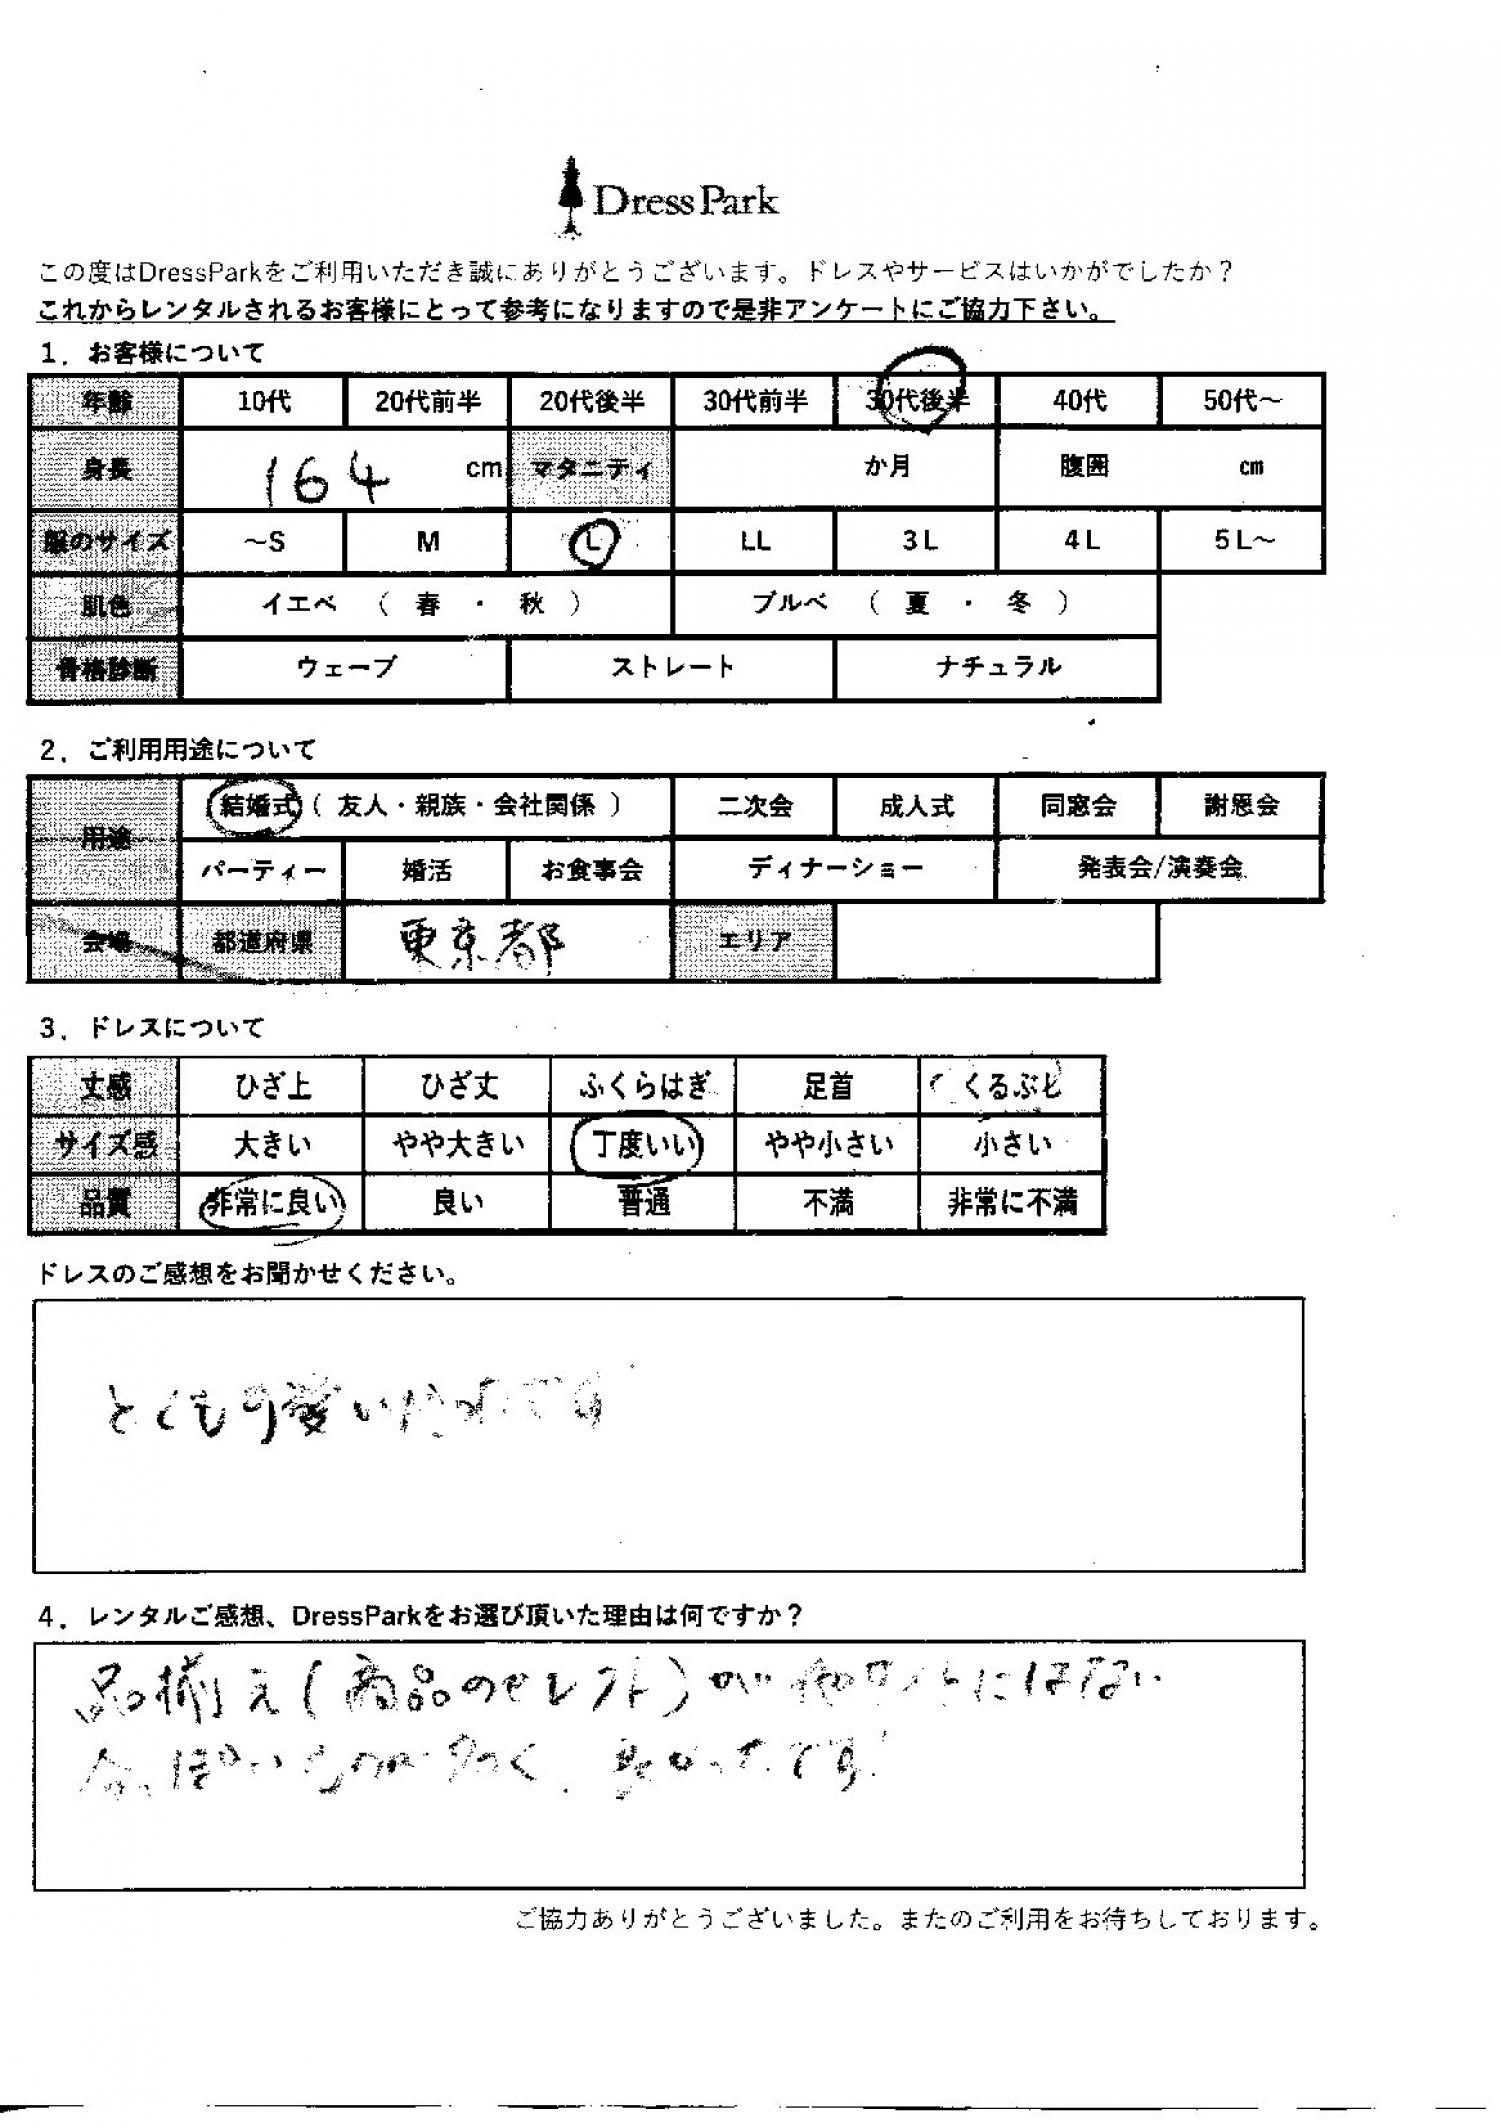 DressPark
この度はDressParkをご利用いただき誠にありがとうございます。ドレスやサービスはいかがでしたか？
これからレンタルされるお客様にとって参考になりますので是非アンケートにご協力下さい。
1．お客様について
年齢 10代 20代前半 20代後半 30代前半 30代後半 40代 50代～
身長 164 cm マタニティ か月 腹囲 cm
服のサイズ ～S M L LL 3L 4L 5L～
肌色 イエベ （ 春 ・ 秋 ） ブルベ （ 夏 ・ 冬 ）
骨格診断 ウェーブ ストレート ナチュラル
2．ご利用用途について
用途 結婚式（ 友人・親族・会社関係 ） 二次会 成人式 同窓会 謝恩会
パーティー 婚活 お食事会 ディナーショー 発表会/演奏会
会場 都道府県 東京都 エリア
3．ドレスについて
丈感 ひざ上 ひざ丈 ふくらはぎ 足首 くるぶし
サイズ感 大きい やや大きい 丁度いい やや小さい 小さい
品質 非常に良い 良い 普通 不満 非常に不満
ドレスのご感想をお聞かせください。
とても可愛い です
4．レンタルご感想、DressParkをお選び頂いた理由は何ですか？
品揃え(商品のセレクト)が他サイトにはない
今っぽいものが多く、良かったです!
ご協力ありがとうございました。またのご利用をお待ちしております。